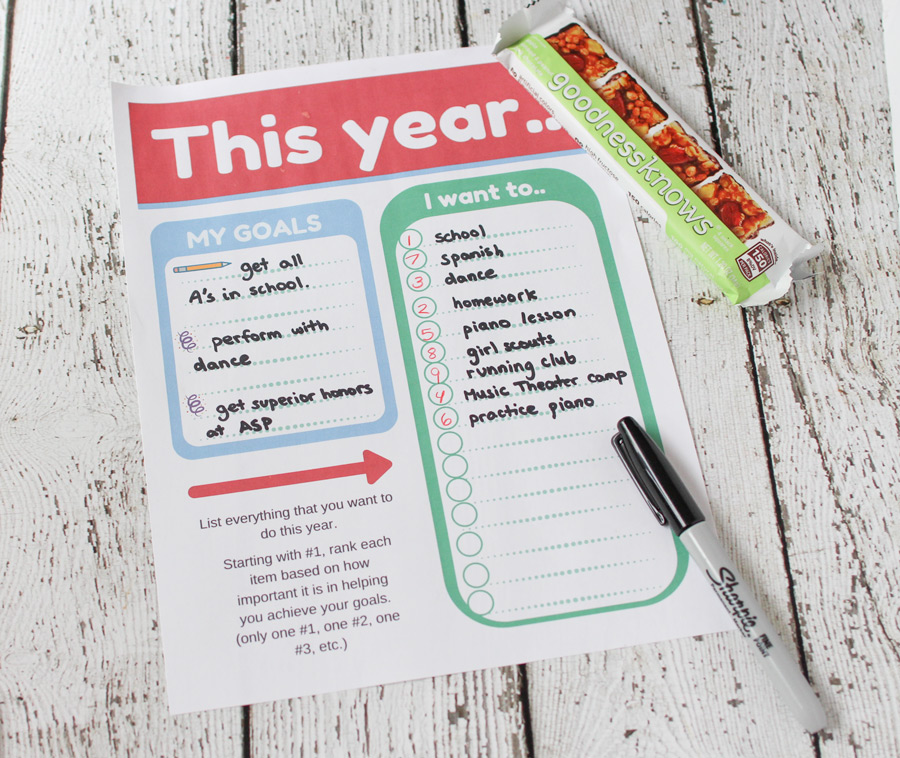 This year..
MY GOALS
get all
A's in school.
perform with
dance
get superior honors
at ASP
List everything that you want to
do this year.
Starting with #1, rank each
item based on how
important it is in helping
you achieve your goals.
(only one #1, one #2, one
#3, etc.)
I want to..
1 school
7 spanish
3 dance
2 homework
5 piano lesson
8 girl scouts
9 running club
4 Music Theater camp
6 practice piano
goodnessknows
150
Sharpie
FINE